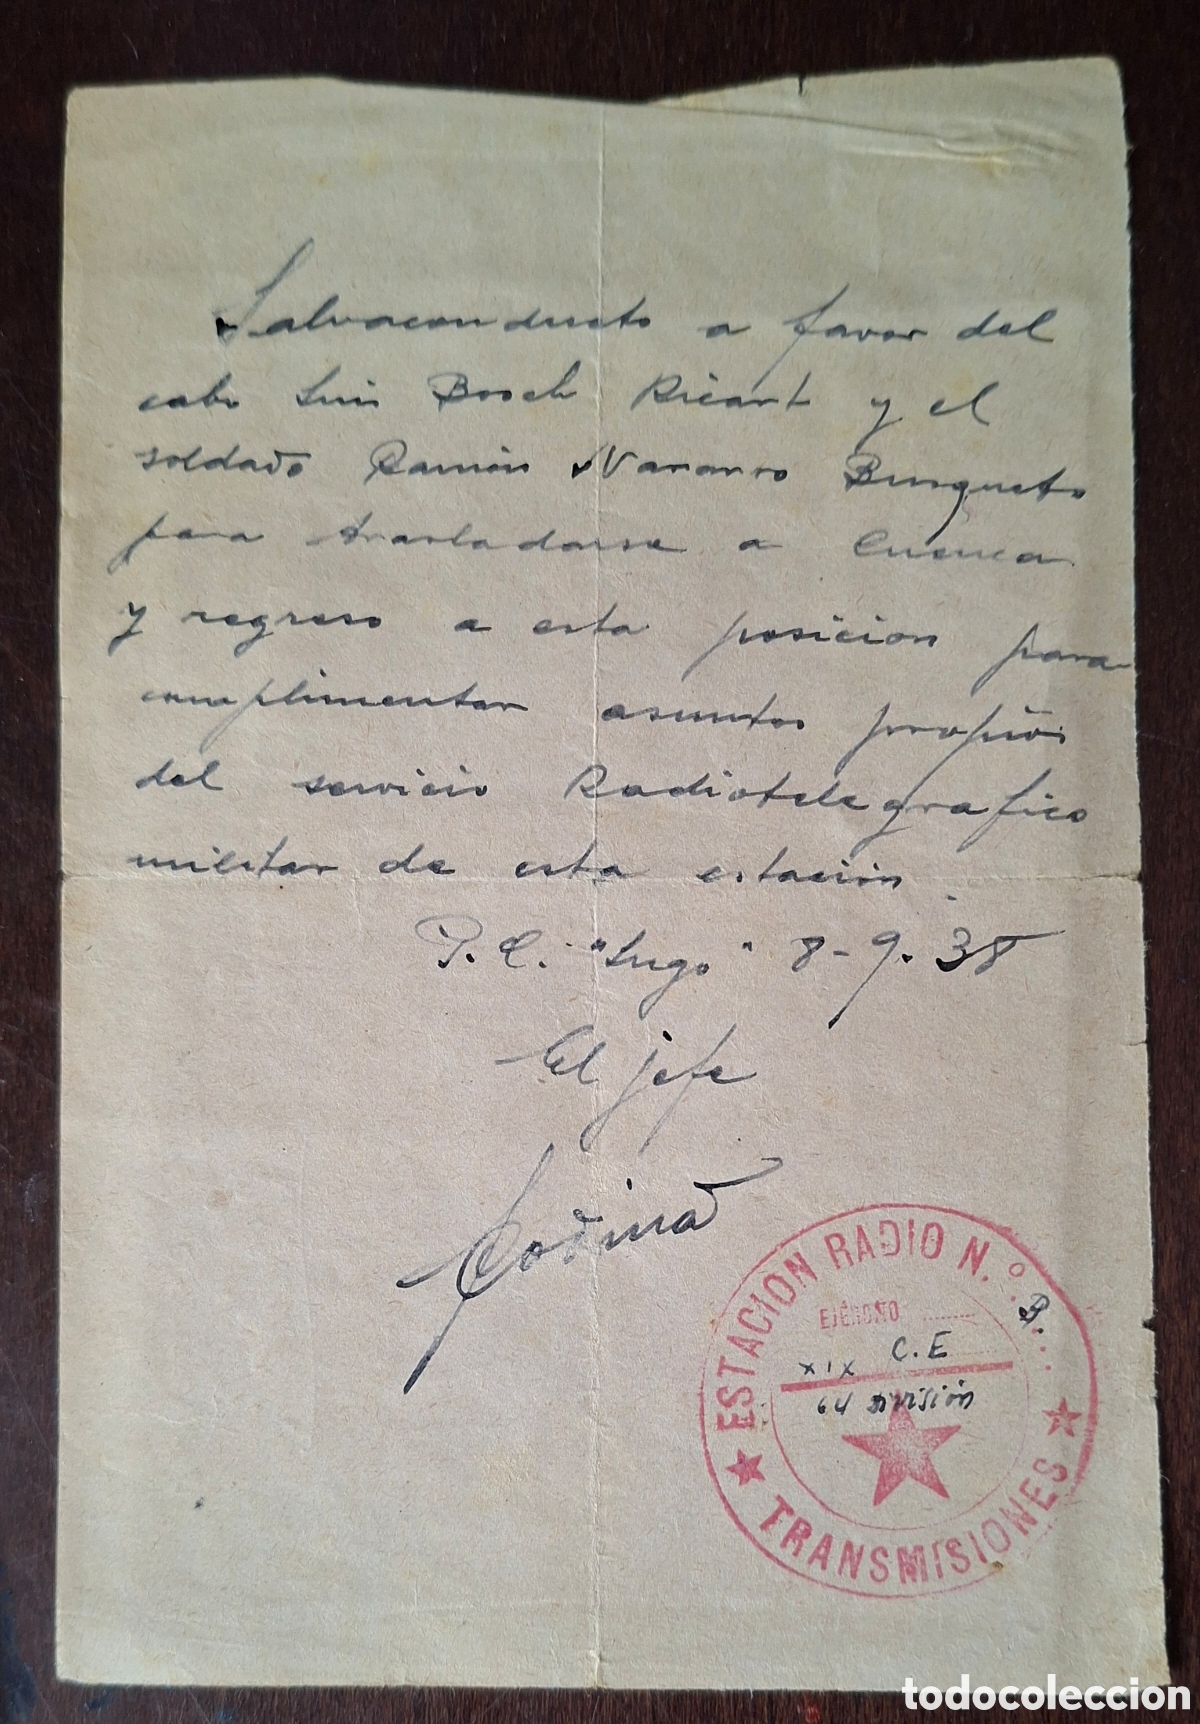 Salvaconducto a favor del
cabo Luis Bosch Ricart y el
soldado Ramón Navarro Busquets
para trasladarse a Cuenca
y regreso a esta posicion para
cumplimentar asuntos propios
del servicio Radiotelegrafico
militar de esta estación.
P.C. "Lugo" 8-9.38
El jefe
Codina
ESTACION RADIO N.º
EJÉRCITO
XIX C.E
64 División
TRANSMISIONES
todocoleccion